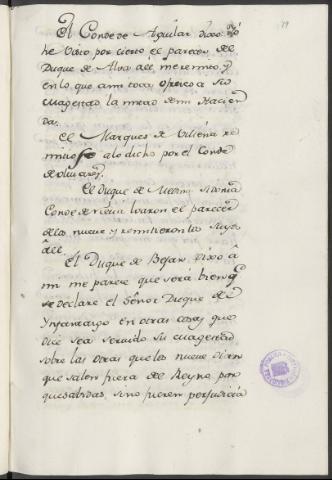 El Conde de Aguilar dixo yo
he visto por cierto el parecer del
Duque de Alva a él me remito, y
en lo que a mi toca, ofrezco a Su
Magestad la mitad de mi Hacien
da.
El Marques de Villena re
mitiose a lo dicho por el Conde
de olivares.
El Duque de Medina Sidonia
Conde de niebla loaron el parecer
de los nueve y remitieron lo suyo
a el.
El Duque de Bejar dixo a
mi me parece que será bien q.
se declare el Señor Duque del
Ynfantazgo en otras cosas que
dice sea servido su Magestad
sobre las otras que los nueve dixeron
que salen fuera del Reyno, por
que sabidas, si no fueren perjudicia